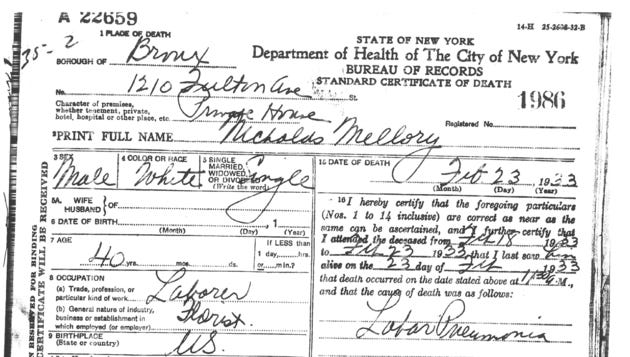 A 22659
14-H 25-2608-32-B
35-2
1 PLACE OF DEATH
STATE OF NEW YORK
Department of Health of The City of New York
BUREAU OF RECORDS
STANDARD CERTIFICATE OF DEATH
BOROUGH OF Bronx
No. 1210 Fulton Ave St.
1986
Character of premises,
whether tenement, private,
hotel, hospital or other place, etc. Private House
Registered No.
2 PRINT FULL NAME Nicholas Mellory
3 SEX
Male
4 COLOR OR RACE
White
5 SINGLE
MARRIED,
WIDOWED,
OR DIVORCED
(Write the word)
Single
5A WIFE
HUSBAND } OF
6 DATE OF BIRTH , 1
(Month) (Day) (Year)
7 AGE
40 yrs. mos. ds.
If LESS than
1 day, hrs.
or min.?
8 OCCUPATION
(a) Trade, profession, or
particular kind of work Laborer
(b) General nature of industry,
business or establishment in
which employed (or employer) Florist
9 BIRTHPLACE
(State or country) U.S.
15 DATE OF DEATH
Feb 23 1933
(Month) (Day) (Year)
16 I hereby certify that the foregoing particulars
(Nos. 1 to 14 inclusive) are correct as near as the
same can be ascertained, and I further certify that
I attended the deceased from Feb 18 1933
to Feb 23 1933 that I last saw him
alive on the 23 day of Feb 1933
that death occurred on the date stated above at M.,
and that the cause of death was as follows:
Lobar Pneumonia
N RESERVED FOR BINDING
CERTIFICATE WILL BE RECEIVED